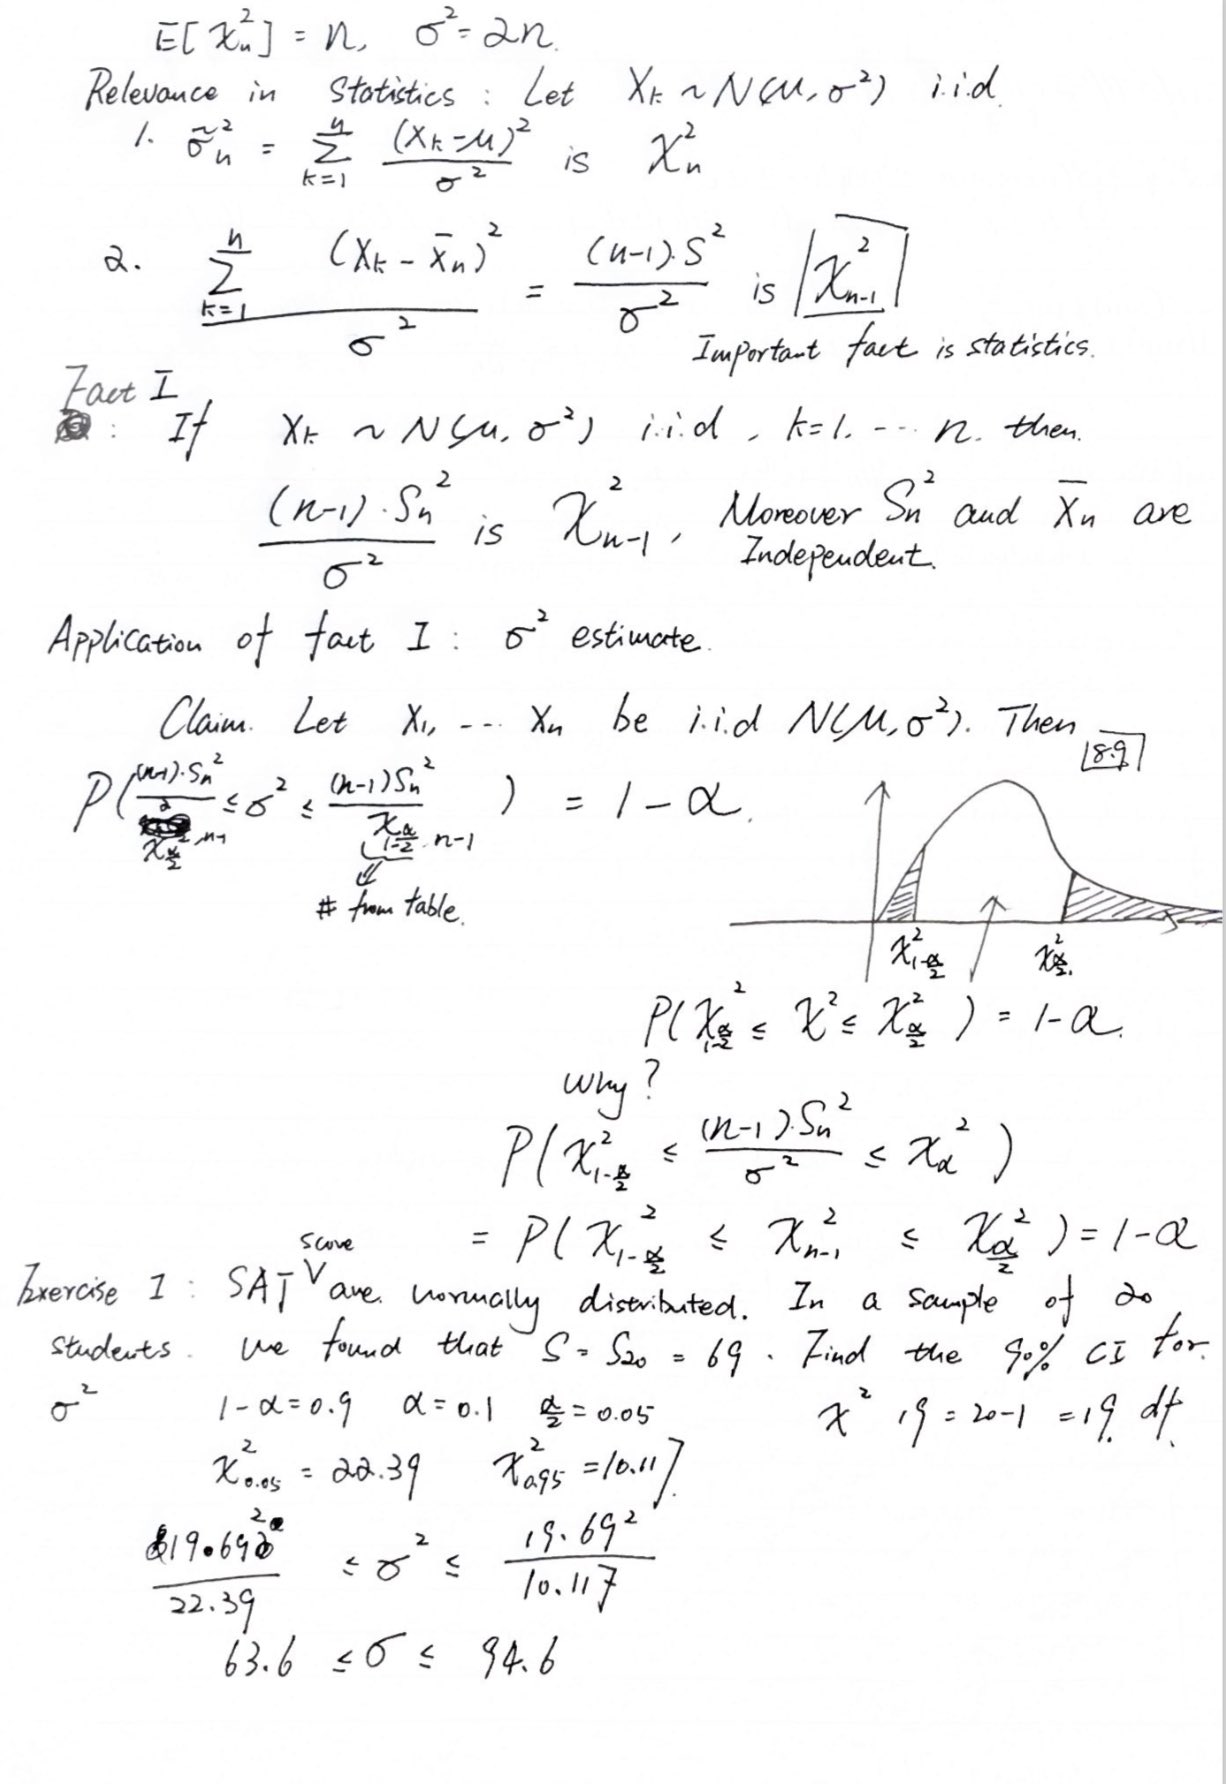 E[χ²ₙ] = n, σ² = 2n.
Relevance in Statistics : Let Xₖ ~ N(μ, σ²) i.i.d
1. σ̃²ₙ = Σₖ₌₁ⁿ (Xₖ-μ)²/σ² is χ²ₙ
2. Σₖ₌₁ⁿ (Xₖ - X̄ₙ)² / σ² = (n-1)·S² / σ² is χ²ₙ₋₁
Important fact is statistics.
Fact I
: If Xₖ ~ N(μ, σ²) i.i.d, k=1, --- n. then.
(n-1)·Sₙ² / σ² is χ²ₙ₋₁, Moreover Sₙ² and X̄ₙ are
Independent.
Application of fact I : σ² estimate.
Claim. Let X₁, --- Xₙ be i.i.d N(μ, σ²). Then
8.9
P( (n-1)·Sₙ² / χ²_{α/2, n-1} ≤ σ² ≤ (n-1)Sₙ² / χ_{1-α/2, n-1} ) = 1 - α.
# from table.
χ²_{1-α/2} χ²_{α/2}.
P( χ²_{1-α/2} ≤ χ² ≤ χ²_{α/2} ) = 1-α.
Why?
P( χ²_{1-α/2} ≤ (n-1)·Sₙ² / σ² ≤ χ²_α )
= P( χ²_{1-α/2} ≤ χ²ₙ₋₁ ≤ χ²_{α/2} ) = 1-α
score
Exercise 1 : SAT V are. normally distributed. In a sample of 20
students. we found that S = S₂₀ = 69. Find the 90% CI for.
σ² 1-α=0.9 α=0.1 α/2=0.05 χ² 19 = 20-1 = 19. df.
χ²_{0.05} = 22.39 χ²_{0.95} = 10.117.
19·69² / 22.39 ≤ σ² ≤ 19·69² / 10.117
63.6 ≤ σ ≤ 94.6